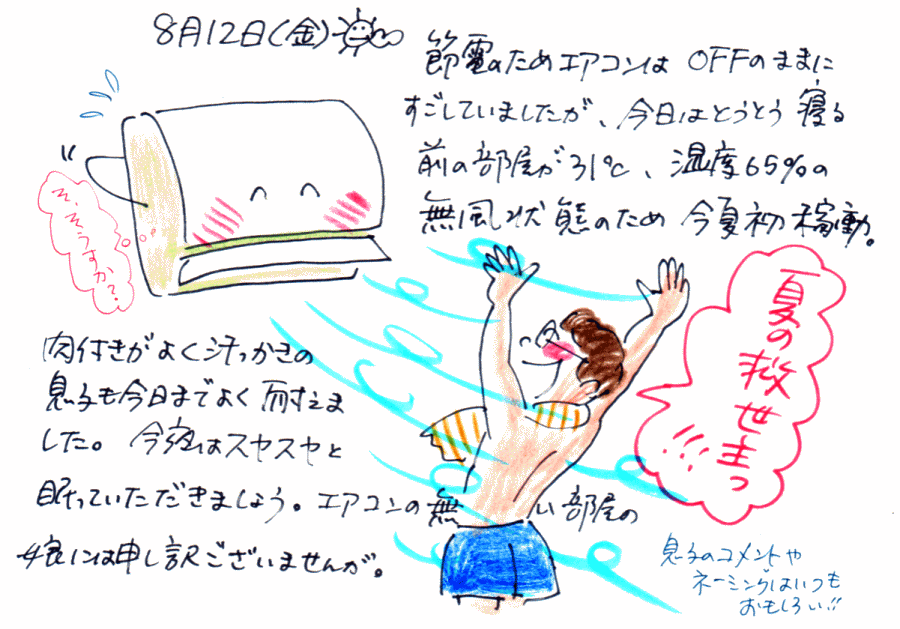 8月12日(金)
節電のためエアコンは OFFのままに
すごしていましたが、今日はとうとう 寝る
前の部屋が31℃、湿度65%の
無風状態のため 今夏初稼動。
そ、そうすか?
夏の救世主っ!!!
肉付きがよく汗っかきの
息子も今日までよく耐えま
した。今夜はスヤスヤと
眠っていただきましょう。エアコンの無い部屋の
娘には申し訳ございませんが。
息子のコメントや
ネーミングはいつも
おもしろい!!